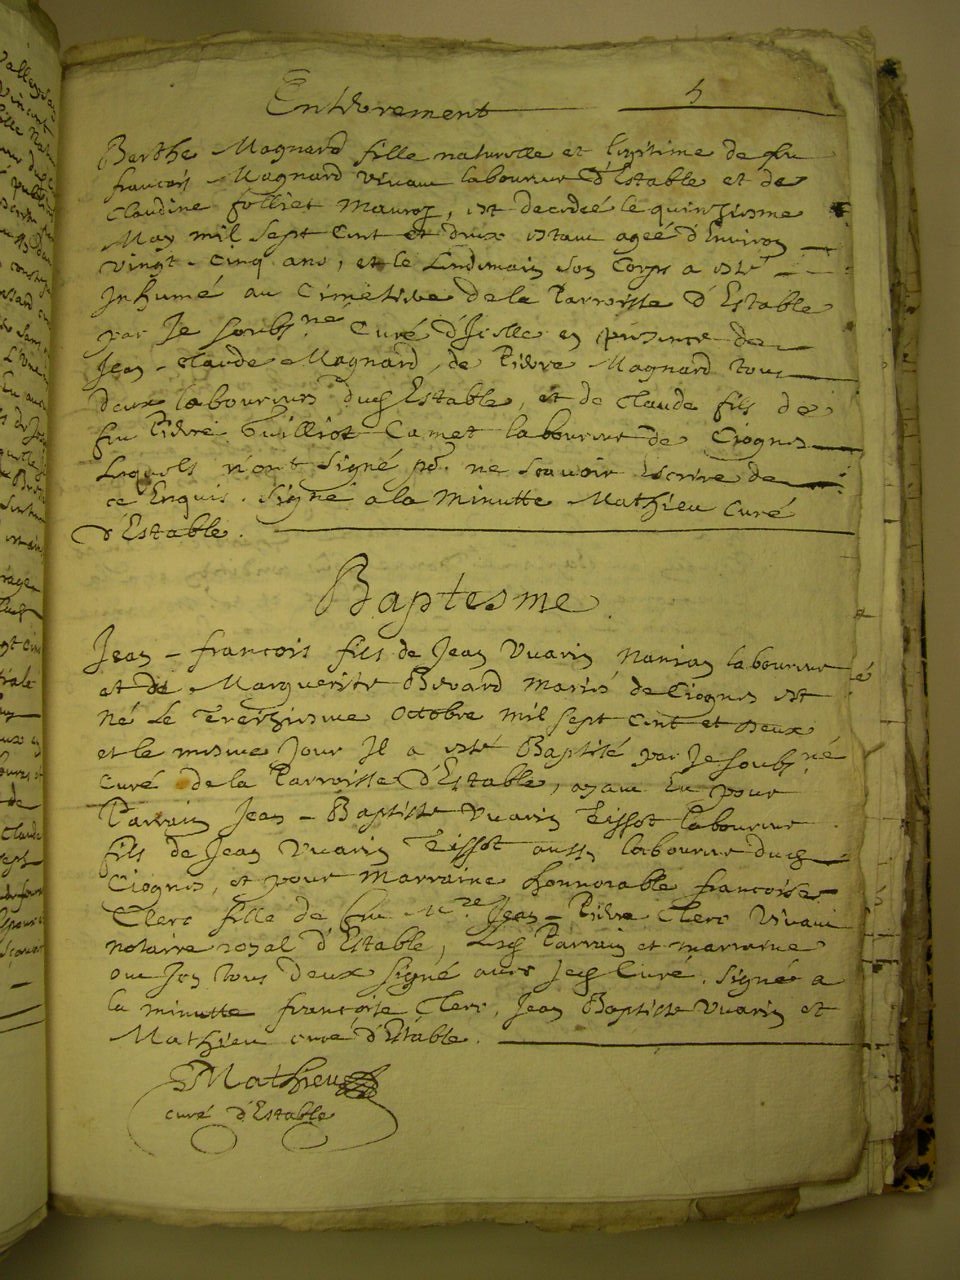 Enterrement 5
Barthe Magnard fille naturelle et legitime de feu
françois Magnard vivant laboureur d'Estable et de
Claudine folliet mauroz, est decedeé le quinzieme
May mil sept cent et deux estant ageé d'Environ
vingt-cinq ans, et le Lendemain son Corps a esté
Jnhumé au Cimetiere de la Parroisse d'Estable
par Je soubs.né Curé d'Jcelle en presence de
Jean-claude Magnard, de Pierre Magnard tous
deux laboureurs dud Estable, et de claude fils de
feu Pierre Guilliot Camet laboureur de Ciognes
Lesquels n'ont signé po.r ne scavoir Escrire de
ce Enquis. Signé a la minutte Mathieu Curé
d'Estable.
Baptesme
Jean-francois fils de Jean Vuarin Nanian laboureur
et de Marguerite Bevard mariés de Ciognes est
né Le Treizieme Octobre mil sept cent et deux
et le mesme Jour Jl a esté Baptisé par Je soubs.né
Curé de la Parroisse d'Estable, ayant Eu pour
Parrain Jean-Baptiste Vuarin Tissot laboureur
fils de Jean Vuarin Tissot aussy laboureur dud
Ciognes, et pour marraine honnorable francoise
Clerc fille de feu M.re Jean-Pierre Clerc Vivant
notaire royal d'Estable, Lesd Parrain et marraine
ont Jcy tous deux signé avec Jed Curé. Signé a
la minutte francoise Clerc, Jean Baptiste Vuarin et
Mathieu curé d'Estable.
Mathieu
curé d'Estable